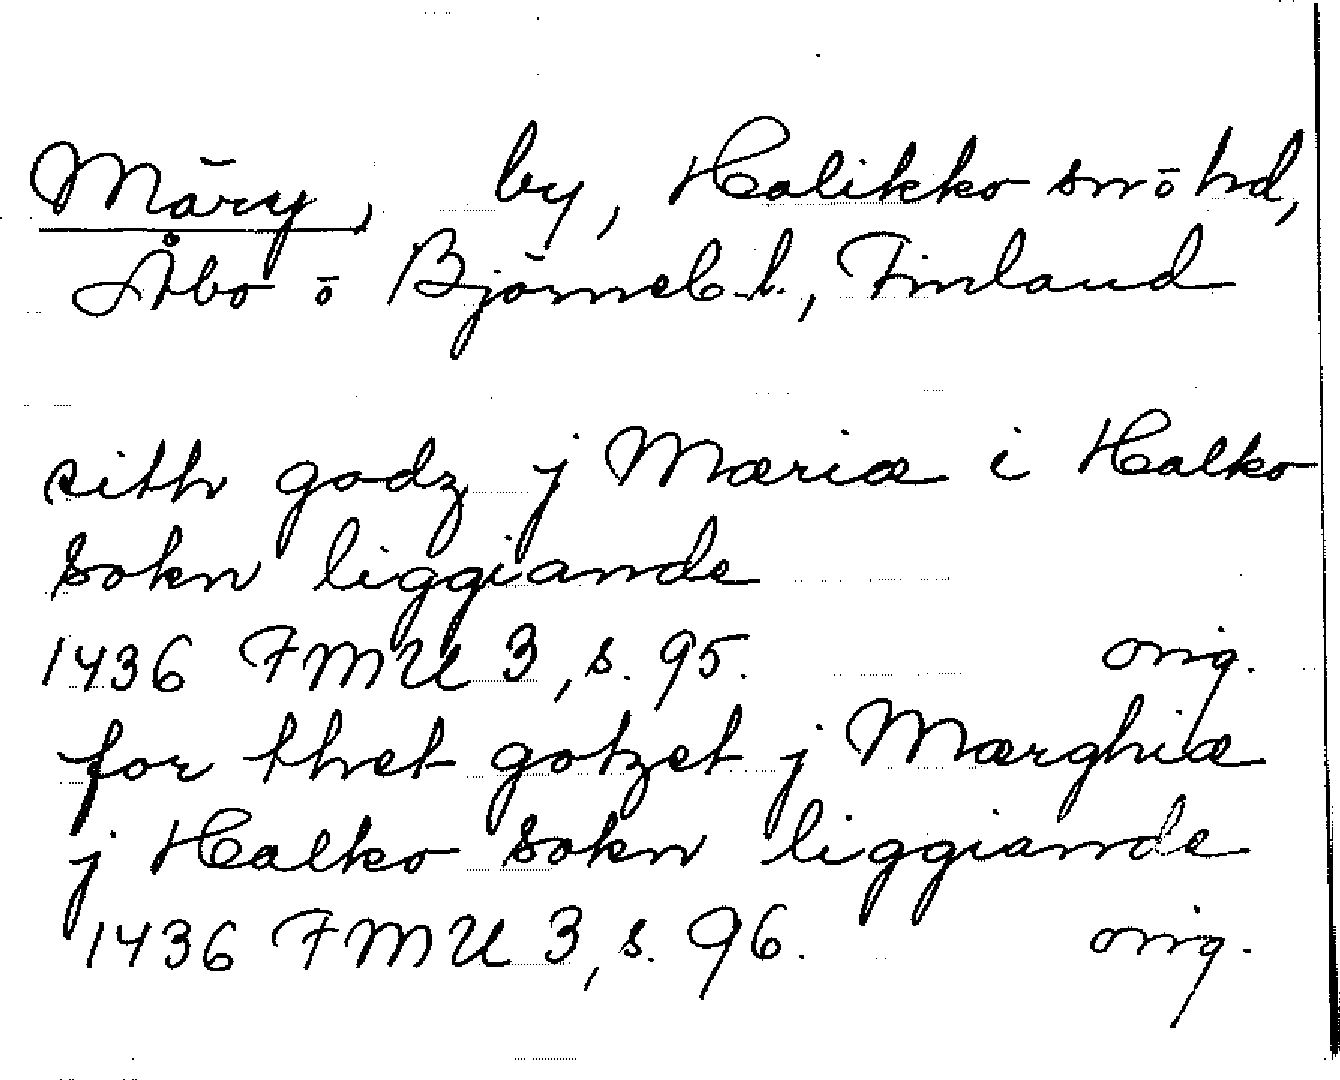 Märy, by, Halikko sn ō hd,
Åbo ō Björneb. l., Finland
sith godz j Mæriæ i Halko
sokn liggiande
1436 FMU 3, s. 95. orig.
for thet gotzet j Mærghiæ
j Halko sokn liggiande
1436 FMU 3, s. 96. orig.